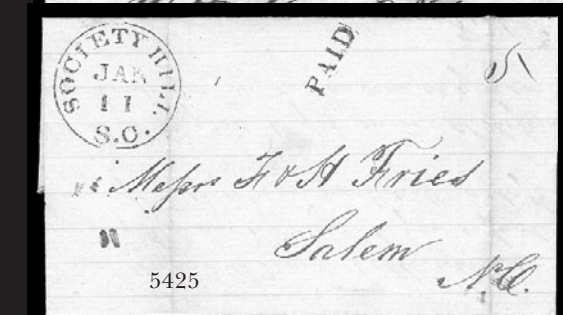 SOCIETY HILL
JAN
11
S.C.
PAID
5
Messrs F & H Fries
Salem
N.C.
5425